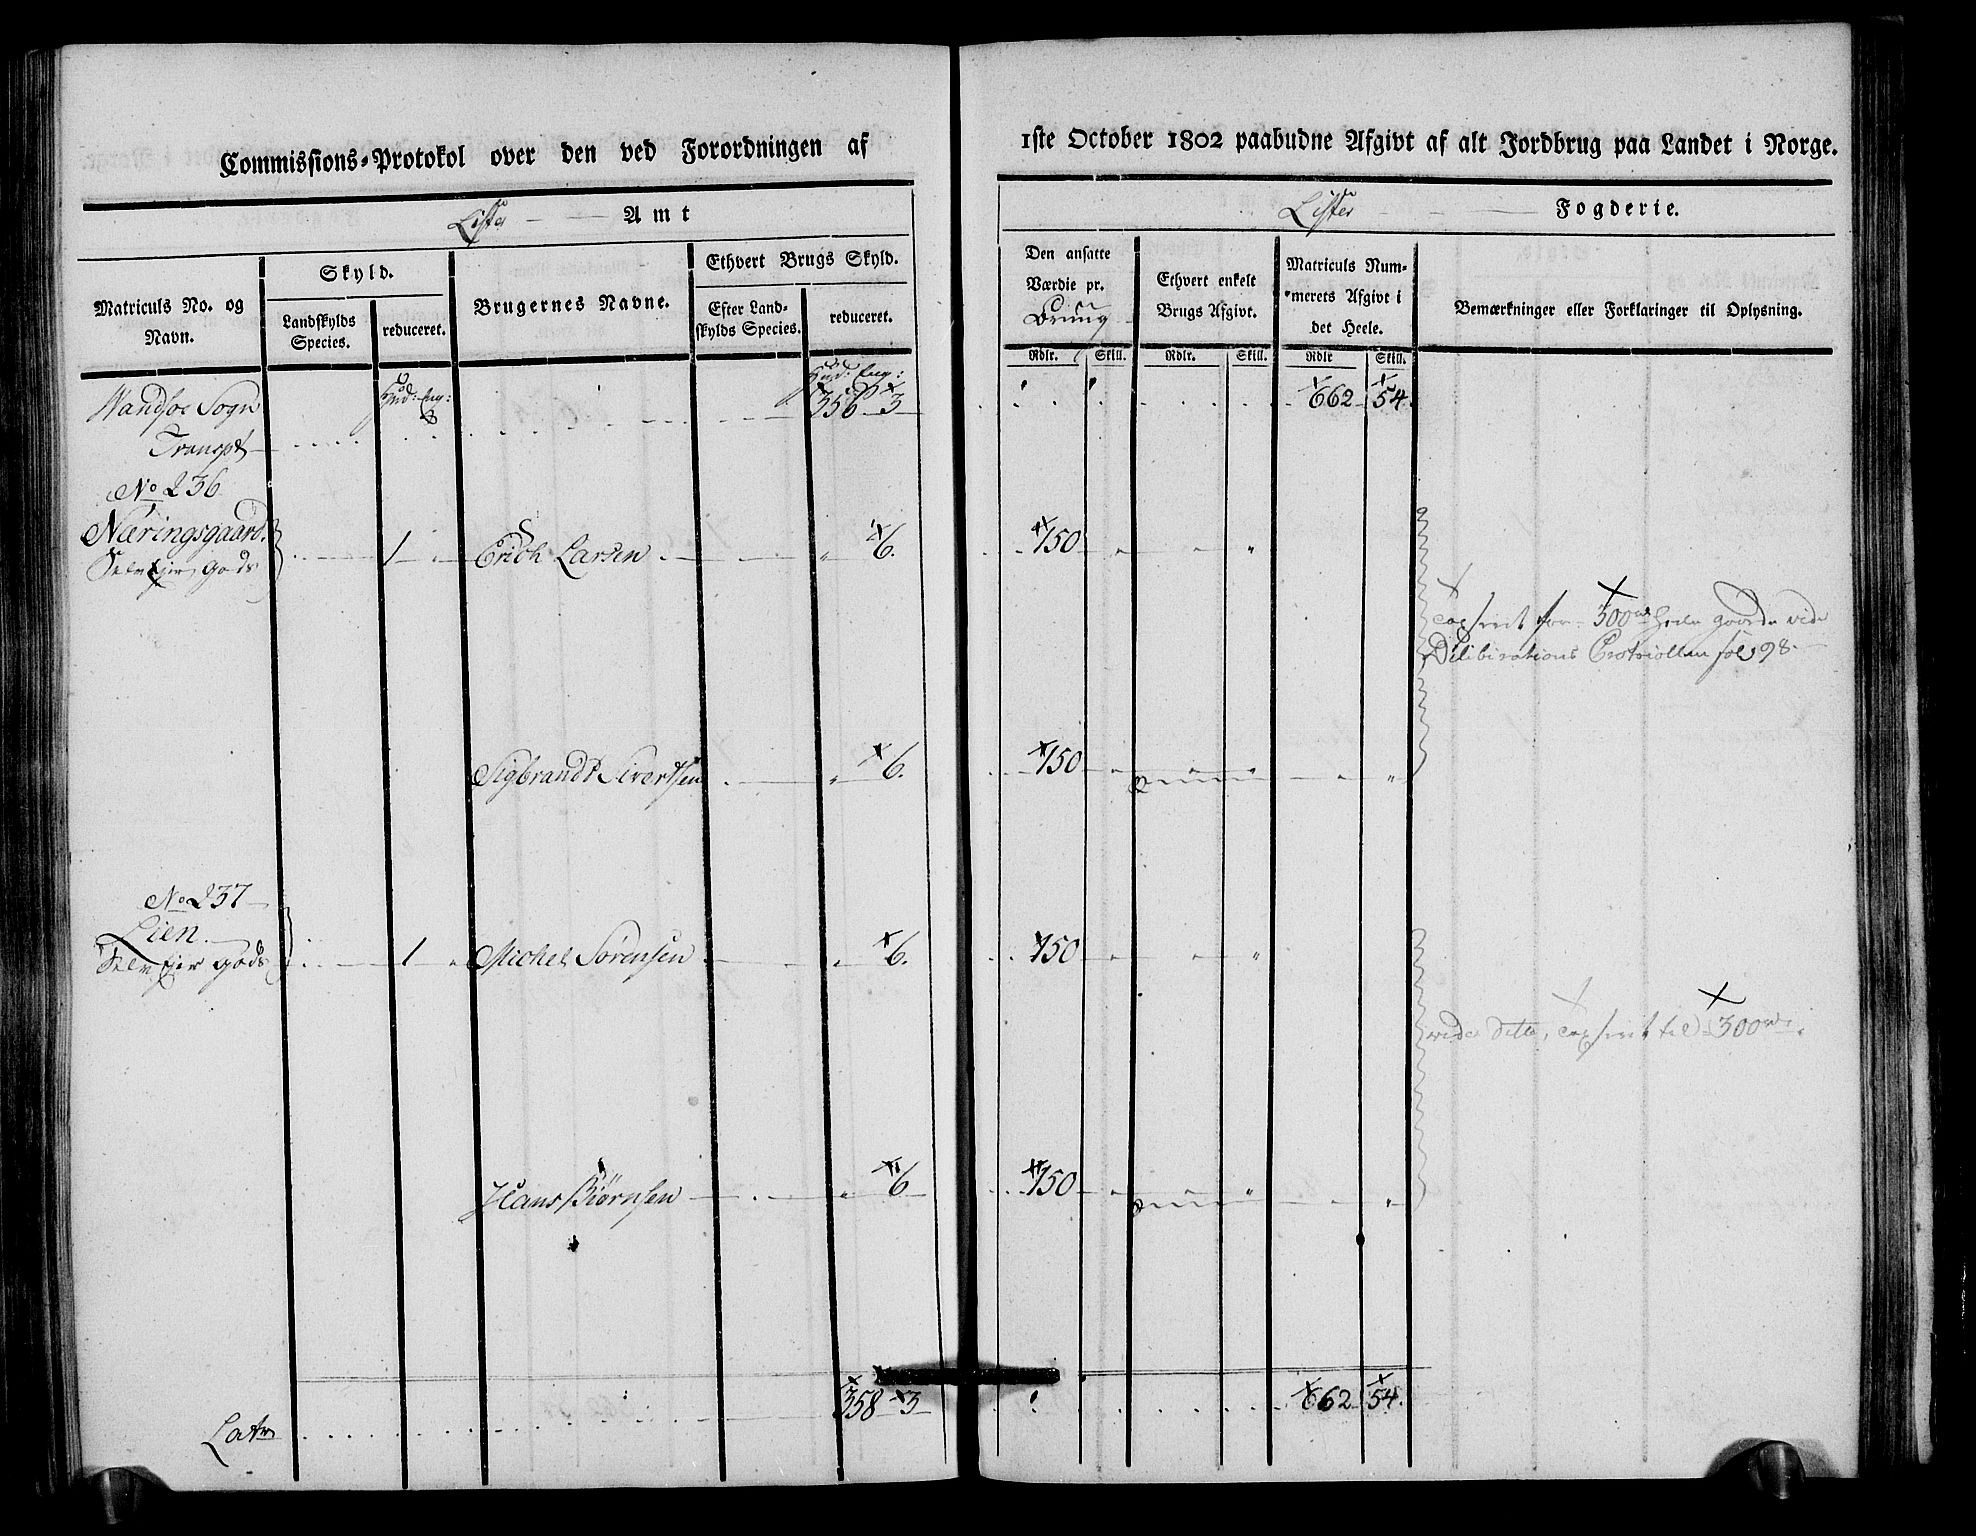 Commissions-Protokol over den ved Forordningen af 1ste October 1802 paabudne Afgivt af alt Jordbrug paa Landet i Norge.
Lister Amt
Lister Fogderie.
Matriculs No. og Navn.
Skyld.
Landskylds Species.
reduceret.
Brugernes Navne.
Ethvert Brugs Skyld.
Efter Landskylds Species.
reduceret.
Den ansatte Værdie pr.
Ethvert enkelt Brugs Afgivt.
Matriculs Nummerets Afgivt i det Heele.
Bemærkninger eller Forklaringer til Oplysning.
Rdlr. Skill. Rdlr. Skill. Rdlr Skill.
Hud: Eng:
Hud: Eng:
Wandsøe Sogn 356 3 662 54.
Transpt
No 236
Næringsgaard.
Selv Ejer Gods 1 Erich Larsen 6. 150
300 Heele Gaarden vide
Deliberations Protocollen fol 98.
Sigbrandt Sivertsen 6. 150
No 237
Lien.
Selv Ejer Gods 1 Michel Sørensen 6. 150
vide dito, til 300
Hans Biørnsen 6 150
Latr 358 3 662 54.